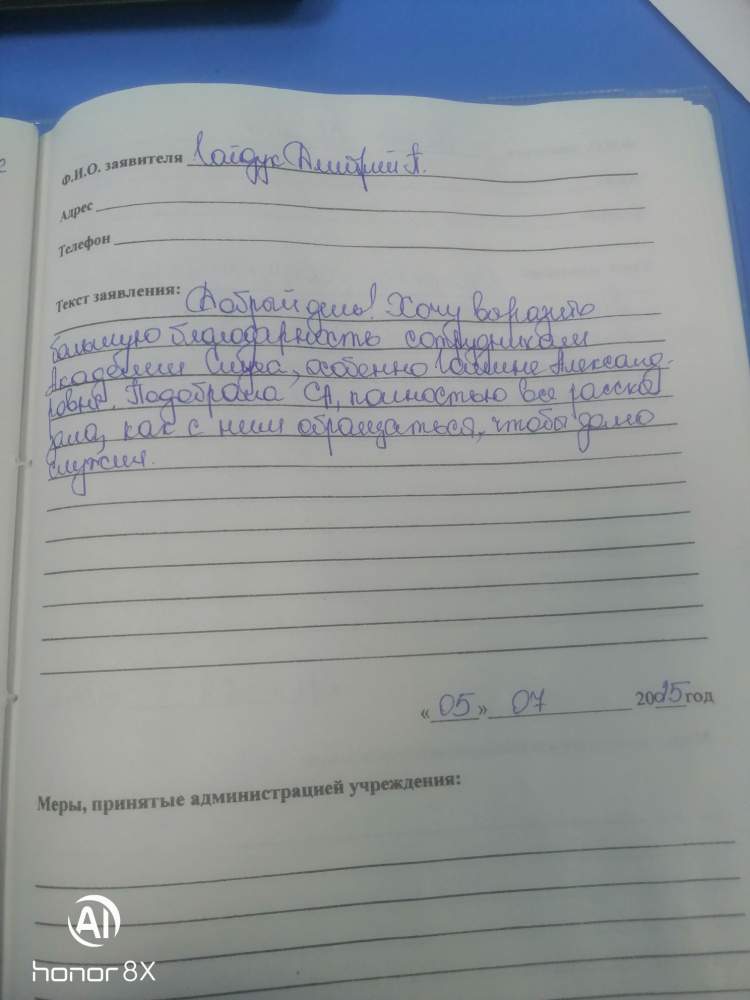 Ф.И.О. заявителя Гайдук Дмитрий А.
Адрес
Телефон
Текст заявления: Добрый день! Хочу выразить
большую благодарность сотрудникам
Академии Слуха, особенно Галине Александ-
ровне. Подобрала СА, полностью все расска
зала, как с ним обращаться, чтобы долго
служил.
«05» 07 2025 год
Меры, принятые администрацией учреждения:
AI
honor 8X